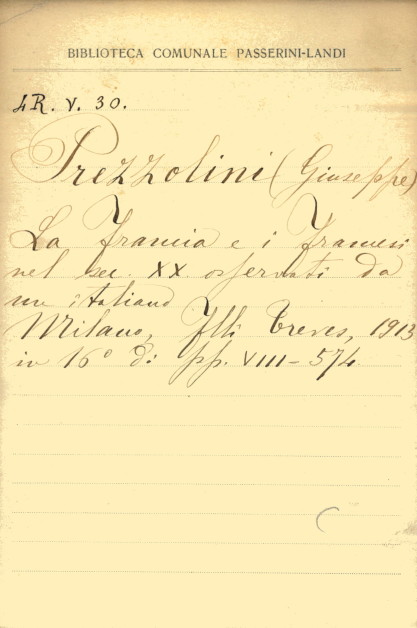 BIBLIOTECA COMUNALE PASSERINI-LANDI
4R. V. 30.
Prezzolini (Giuseppe)
La Francia e i Francesi
nel sec. XX osservati da
un italiano
Milano, Flli Treves, 1913
in 16° di pp. VIII-574